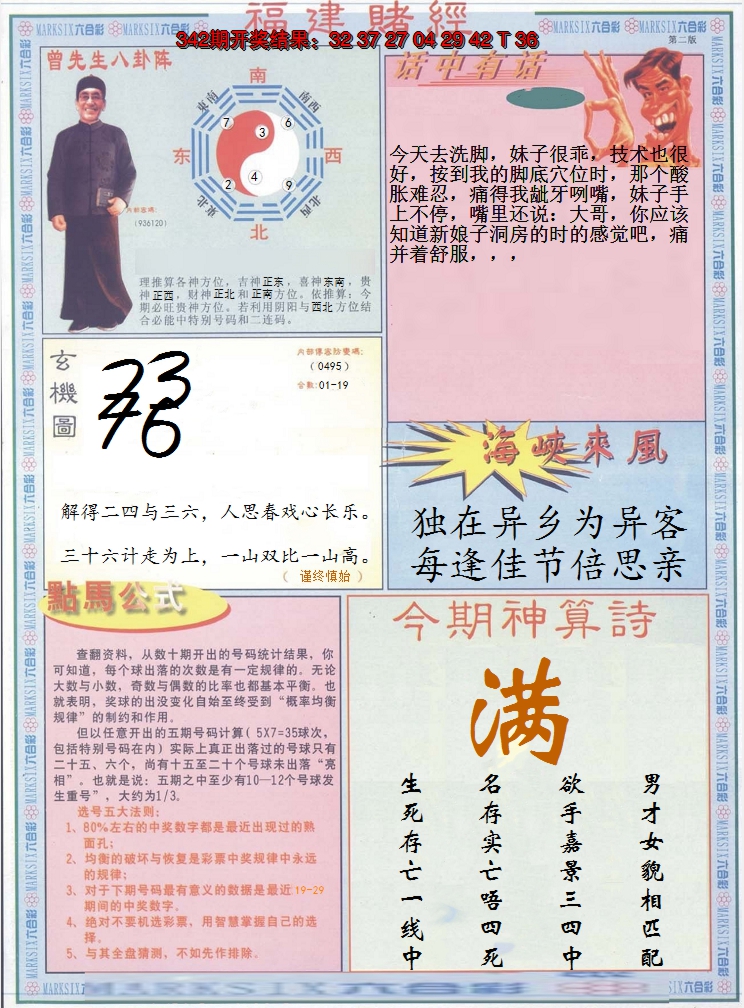 福建賭經
342期开奖结果：32 37 27 04 29 42 T 36
MARKSIX六合彩
第二版
曾先生八卦阵
南
东南
西南
7
3
6
东
西
2
4
9
东北
西北
北
内部密码:
(936120)
理推算各神方位，吉神正东，喜神东南，贵
神正西，财神正北和正南方位。依推算：今
期必旺贵神方位。若利用阴阳与西北方位结
合必能中特别号码和二连码。
话中有话
今天去洗脚，妹子很乖，技术也很
好，按到我的脚底穴位时，那个酸
胀难忍，痛得我龇牙咧嘴，妹子手
上不停，嘴里还说：大哥，你应该
知道新娘子洞房的时的感觉吧，痛
并着舒服，，，
玄機圖
内部传密防变碼:
(0495)
合数:01-19
解得二四与三六，人思春戏心长乐。
三十六计走为上，一山双比一山高。
（ 谨终慎始 ）
海峽來風
独在异乡为异客
每逢佳节倍思亲
點馬公式
查翻资料，从数十期开出的号码统计结果，你
可知道，每个球出落的次数是有一定规律的。无论
大数与小数，奇数与偶数的比率也都基本平衡。也
就表明，奖球的出没变化自始至终受到“概率均衡
规律”的制约和作用。
但以任意开出的五期号码计算( 5X7=35球次，
包括特别号码在内) 实际上真正出落过的号球只有
二十五、六个，尚有十五至二十个号球未出落“亮
相”。也就是说：五期之中至少有10—12个号球发
生重号”，大约为1/3。
选号五大法则:
1、80%左右的中奖数字都是最近出现过的熟
面孔；
2、均衡的破坏与恢复是彩票中奖规律中永远
的规律；
3、对于下期号码最有意义的数据是最近19-29
期间的中奖数字。
4、绝对不要机选彩票，用智慧掌握自己的选
择。
5、与其全盘猜测，不如先作排除。
今期神算詩
满
男才女貌相匹配
欲手嘉景三四中
名存实亡唔四死
生死存亡一线中